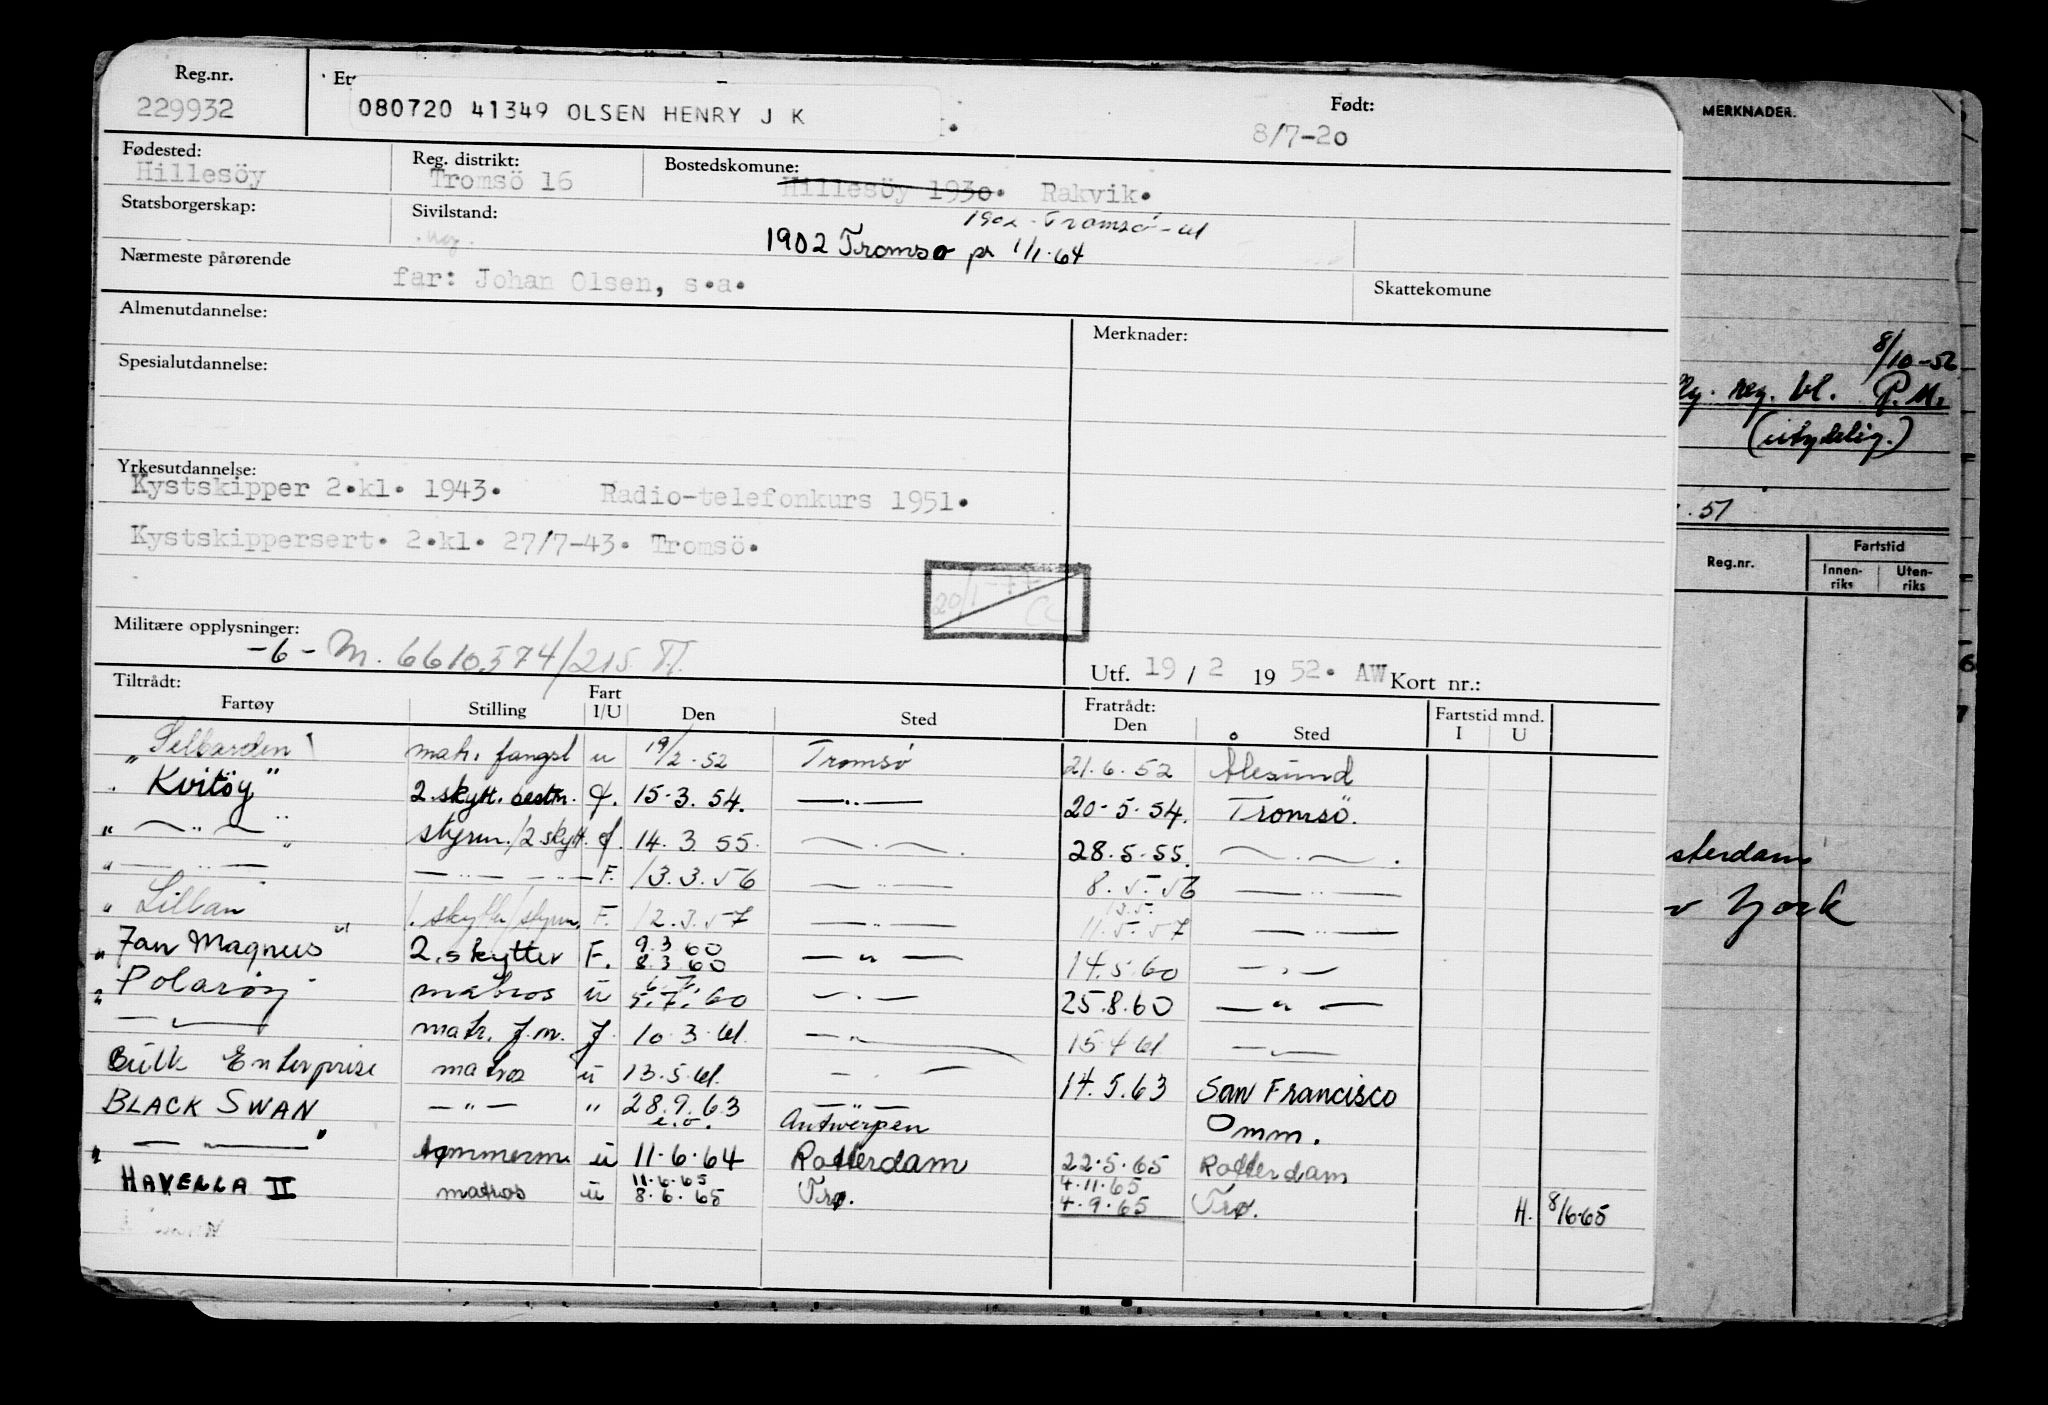 Reg.nr. Et Født:
229932 080720 41349 OLSEN HENRY J K 8/7-20
Fødested: Reg. distrikt: Bostedskomune:
Hillesöy Tromsö 16 Hillesöy 1930. Rakvik.
Statsborgerskap: Sivilstand: 1902 - Tromsø - 61
1902 Tromsø pr 1/1-64
Nærmeste pårørende
far: Johan Olsen, s.a. Skattekomune
Almenutdannelse: Merknader:
Spesialutdannelse:
Yrkesutdannelse:
Kystskipper 2.kl. 1943. Radio-telefonkurs 1951.
Kystskippersert. 2.kl. 27/7-43. Tromsö.
Militære opplysninger:
-6- M. 6610574/215 TT.
Utf. 19 / 2 19 52. AW Kort nr.:
Tiltrådt: Fratrådt: Fartstid mnd.
Fartøy Stilling Fart I/U Den Sted Den Sted I U
"Selbarden" matr. fangst u 19/2-52 Tromsø 21.6.52 Ålesund
"Kvitöy" 2.skytt. bestm. f. 15.3.54. —"— 20-5-54. Tromsö.
" —"— " styrm./2 skytt. f. 14.3 55. —"— 28.5.55. —"—
" —"— —"— —"— F. 13.3.56 —"— 8.5.56 —"—
" Lilban " 1. skytter/styrm. F. 12.3.57 —"— 13.5. 11.5.57 —"—
"Jan Magnus" 2. skytter F. 9.3 60 8.3 60 —"— 14.5.60 —"—
"Polarøy matros u 6.7. 5.7.60 —"— 25.8.60 —"—
—"— matr. f.m. f. 10.3.61. —"— 15.4 61 —"—
Bulk Enterprise matros u 13.5.61. —"— 14.5.63 San Francisco
BLACK SWAN —"— " 28.9.63 e.o. —"— Antwerpen Omm.
" —"— " tømmerm. u 11.6.64 Rotterdam 22.5.65 Rotterdam
HAVELLA II matros u 11.6.65 8.6.65 Trø. 4.11.65 4.9.65 Trø. H. 8/6-65
MERKNADER.
8/10-52
Ny. reg. bl. P.M.
(utydelig.)
.51
Reg.nr. Fartstid
Innen-riks Uten-riks
sterdam
York